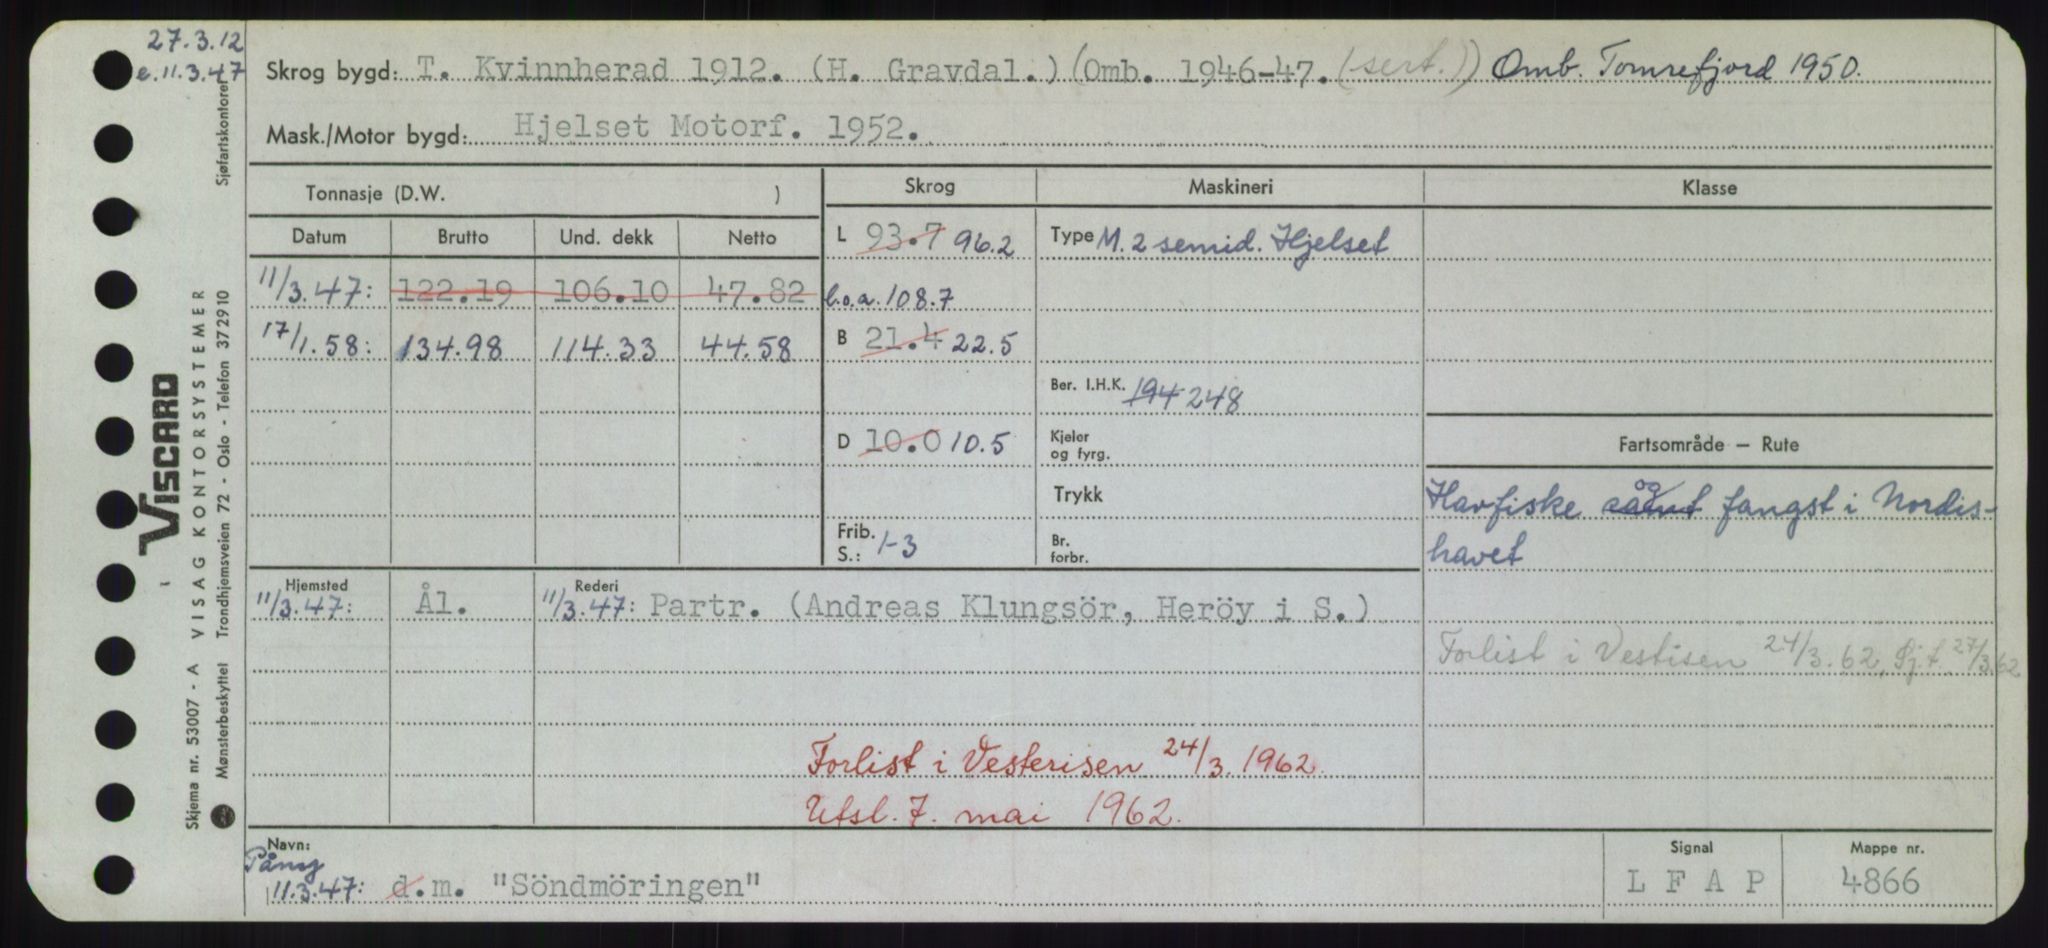 27.3.12
e.11.3.47
Skrog bygd: T. Kvinnherad 1912. (H. Gravdal.) (Omb. 1946-47. (sert.)) Omb. Tomrefjord 1950.
Mask./Motor bygd: Hjelset Motorf. 1952.
Tonnasje (D.W. )
Skrog
Maskineri
Klasse
Datum Brutto Und. dekk Netto
11/3.47: 122.19 106.10 47.82
17/1.58: 134.98 114.33 44.58
L 93.7 96.2
l.o.a. 108.7
B 21.4 22.5
D 10.0 10.5
Frib.
S.: 1-3
Type M. 2 semid. Hjelset
Ber. I.H.K. 194 248
Kjeler
og fyrg.
Trykk
Br.
forbr.
Fartsområde — Rute
og
Havfiske samt fangst i Nordis-
havet
Forlist i Vestisen 24/3.62, Sj.t. 27/3.62
Hjemsted
11/3.47: Ål.
Rederi
11/3.47: Partr. (Andreas Klungsör, Heröy i S.)
Forlist i Vesterisen 24/3. 1962.
Utsl. 7. mai 1962.
Navn:
11.3.47: d.m. "Söndmöringen"
Signal
L F A P
Mappe nr.
4866
Sjøfartskontoret
VISCARD
VISAG KONTORSYSTEMER
Trondhjemsveien 72 - Oslo - Telefon 372910
Skjema nr. 53007 - A
Mønsterbeskyttet